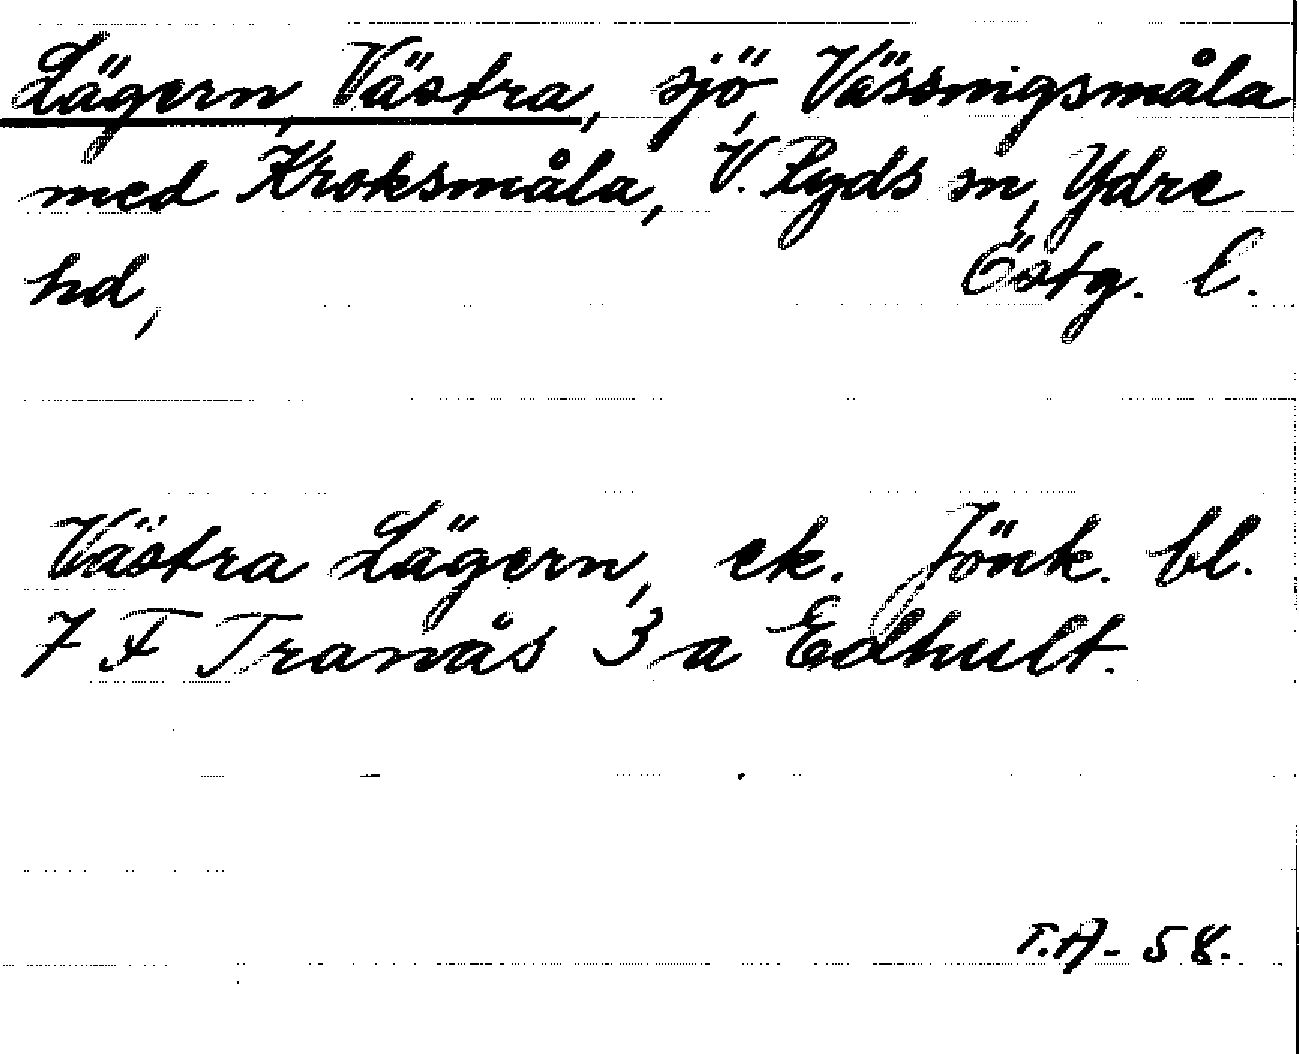 Lägern, Västra, sjö, Vässnigsmåla
med Kroksmåla, V. Ryds sn, Ydre
hd, Östg. l.
Västra Lägern, ek. Jönk. bl.
7 F Tranås 3 a Edhult.
T.A- 58.